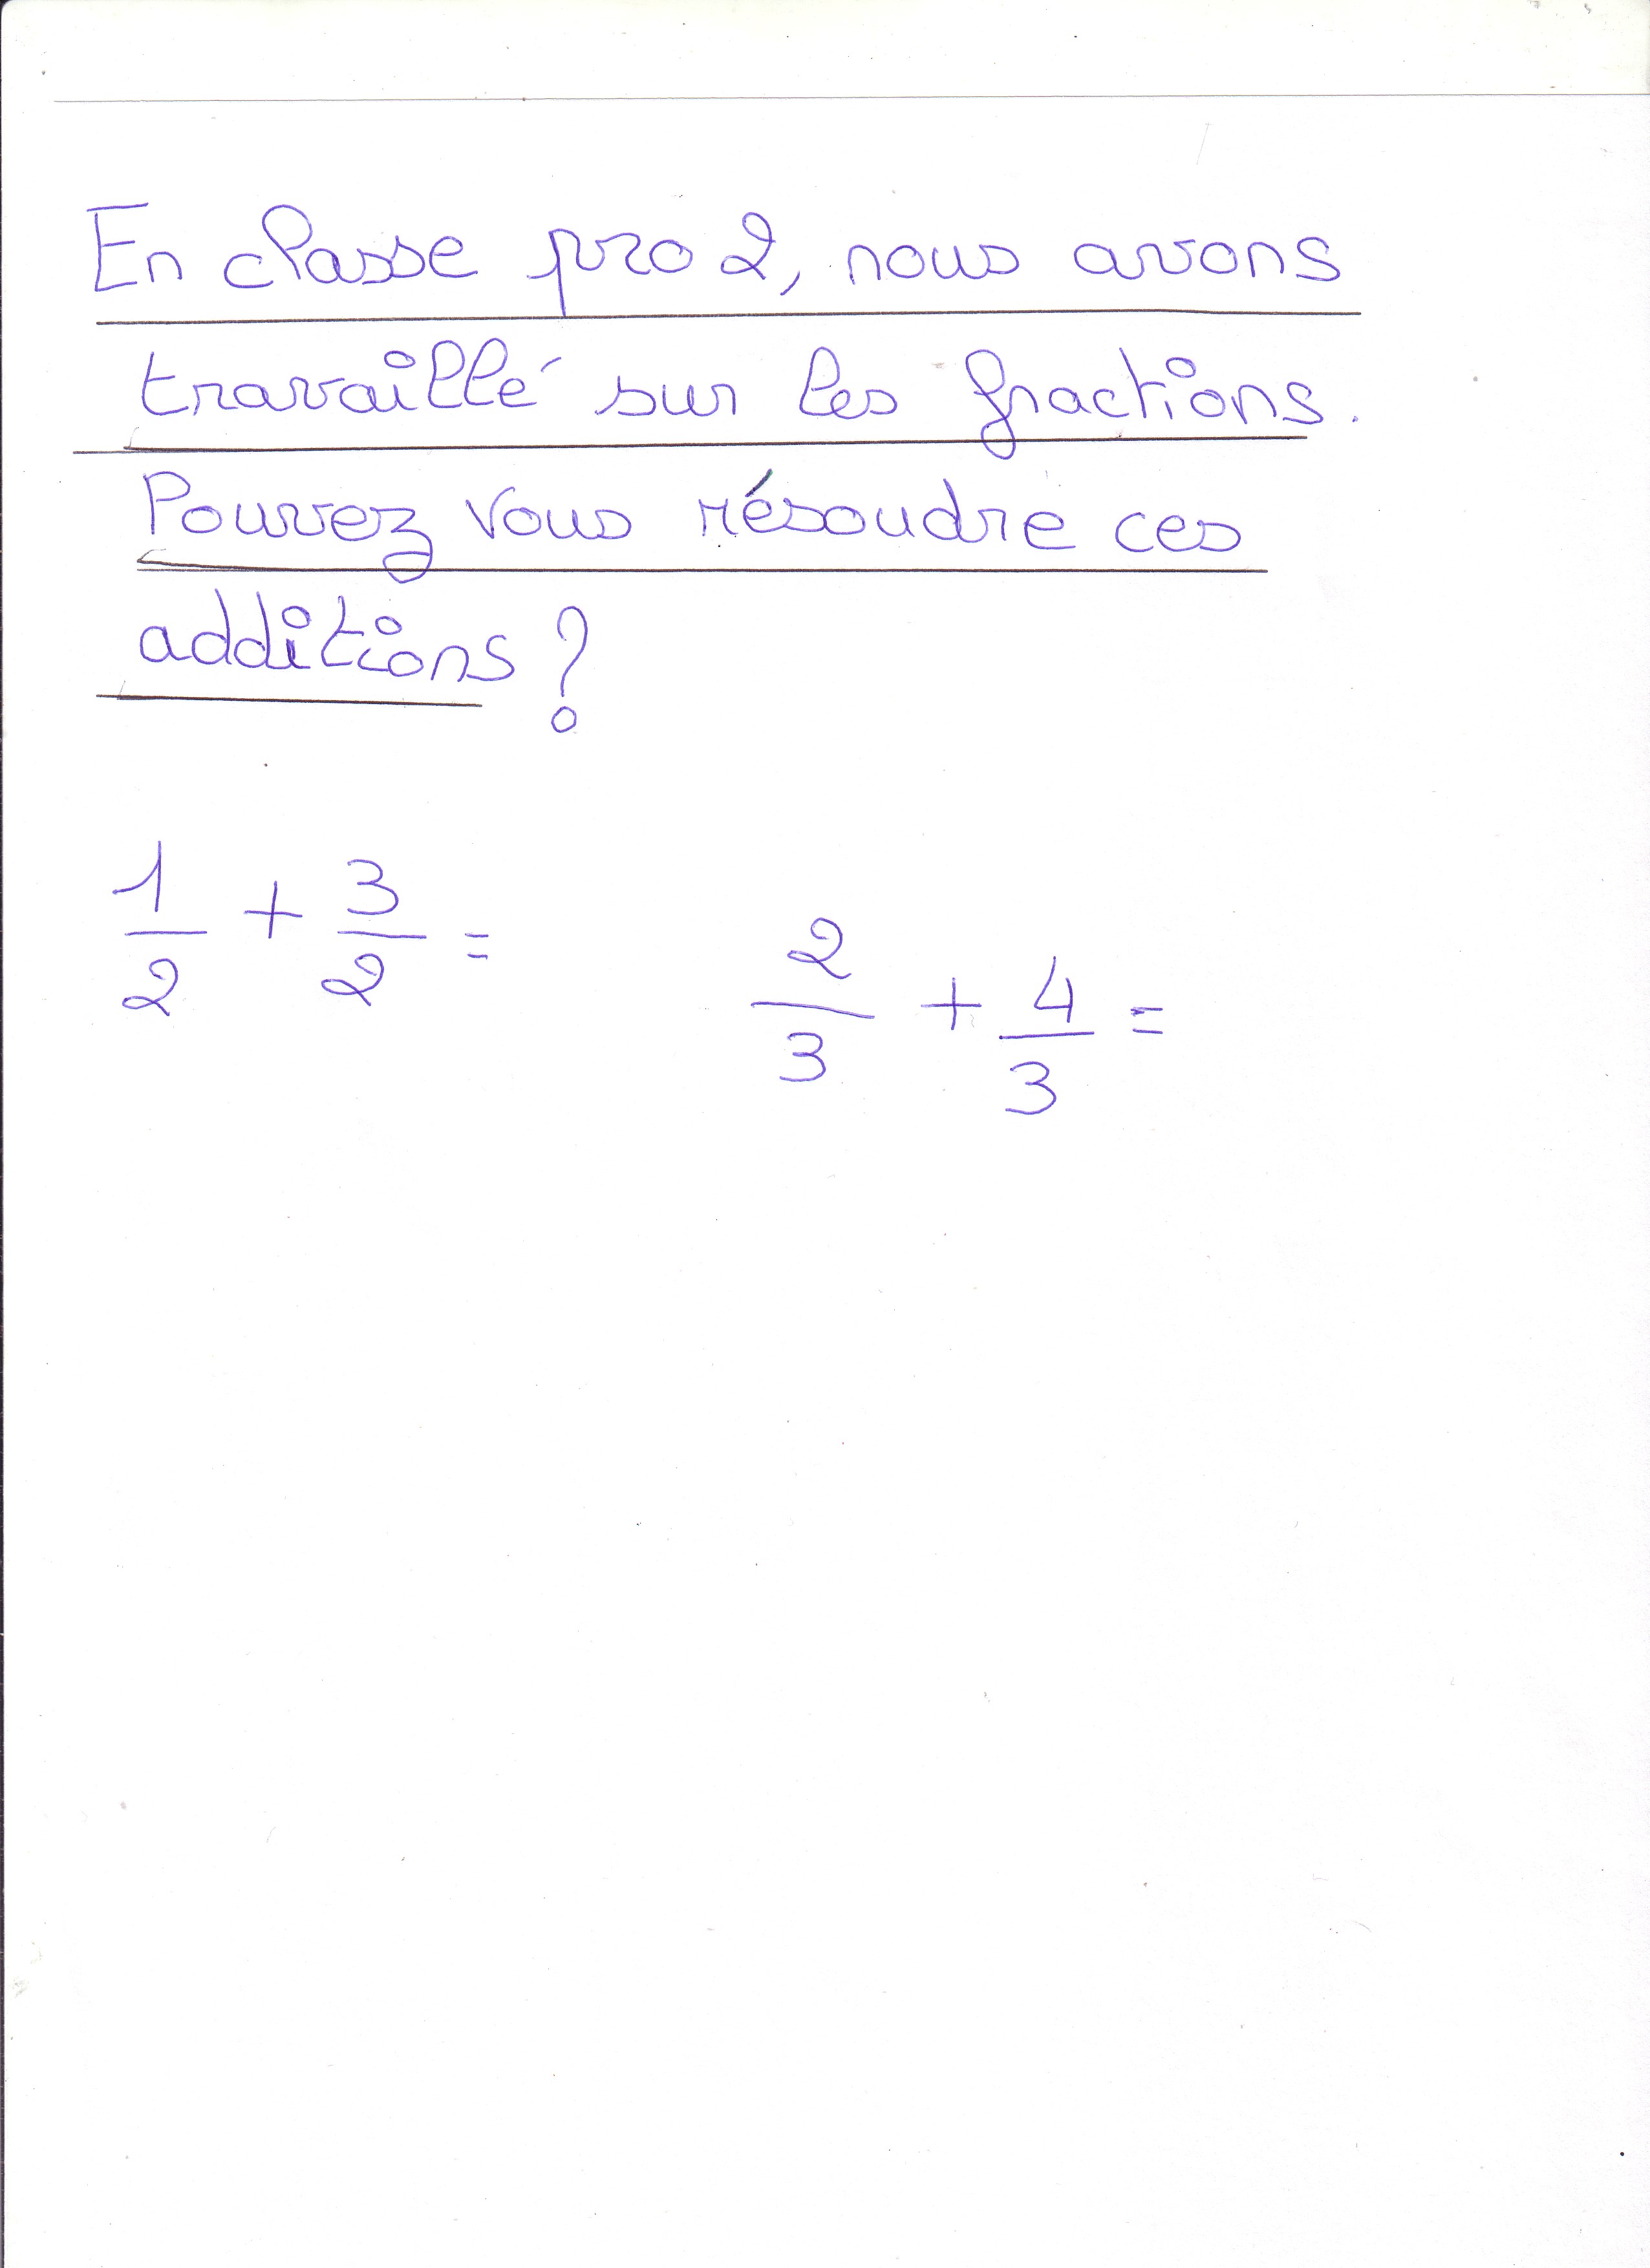 En classe pro 2, nous avons
travaillé sur les fractions.
Pouvez vous résoudre ces
additions ?
1/2 + 3/2 =
2/3 + 4/3 =